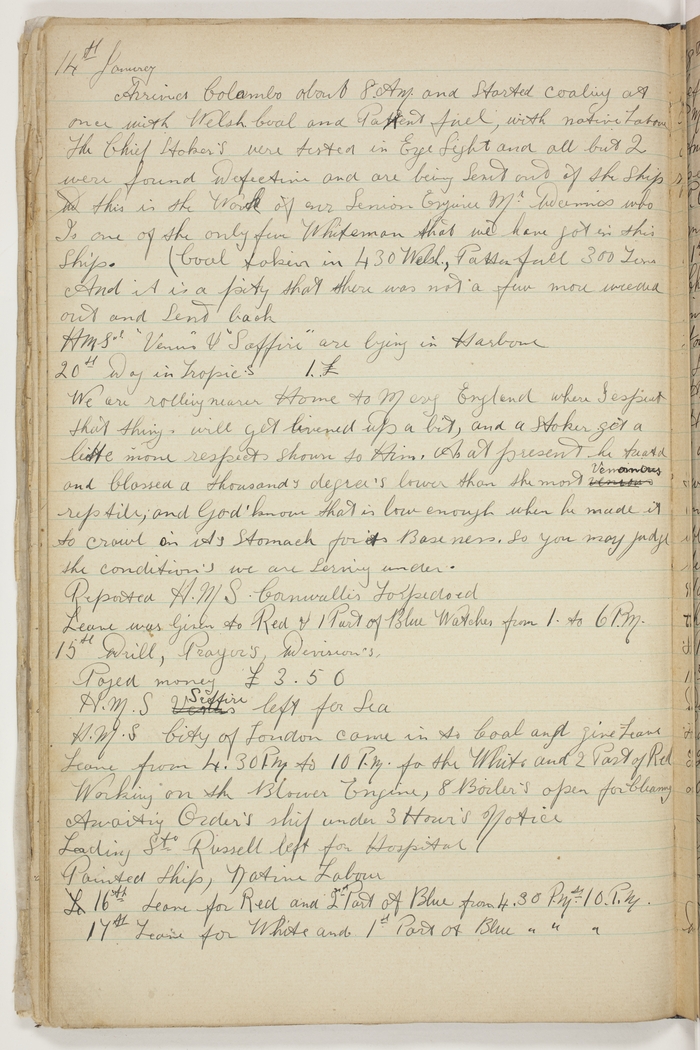 14th January
Arrived Colombo about 8 AM. and Started coaling at
once with Welsh Coal and Pattent fuel, with native Labour
The Chief Stoker's were tested in Eye Sight and all but 2
were found Defective and are being Send out of the Ship
this is the Work of our Senion Engine Mr. Adamis who
Is one of the only few Whiteman that we have got in this
Ship. (Coal taken in 430 Welsh, Patten full 300 Tons
And it is a pity that there was not a few more weeded
out and Send back
H.M.S.s "Venus" & "Saffire" are lying in Harbour
20th Day in Tropic's 1.£
We are rolling nearer Home to Merry England where I expect
that things will get livened up a bit, and a Stoker get a
little more respects shown to Him. As at present he treatd
and Classed a thousand's degree's lower than the most Venomous
reptile; and God' know that is low enough when he made it
to crawl on it's Stomach for its Baseness. So you may judge
the condition's we are Serving under.
Reported H.M.S. Cornwallis Torpedoed
Leave was Given to Red & 1 Part of Blue Watches from 1. to 6 P.M.
15th Drill, Prayer's, Division's,
Payed money £ 3.50
H.M.S Saffire left for Sea
H.M.S City of London came in to Coal and give Leave
Leave from 4.30 PM to 10 P.M. fo the White and 2 Part of Red
Working on the Blower Engine, 8 Boiler's open for Cleaning
Awaiting Order's ship under 3 Hour's Notice
Leading Sto Russell left for Hospital
Painted Ship, Native Labour
16th Leave for Red and 2nd Part of Blue from 4.30 PM to 10. P.M.
17th Leave for White and 1st Part of Blue " " "